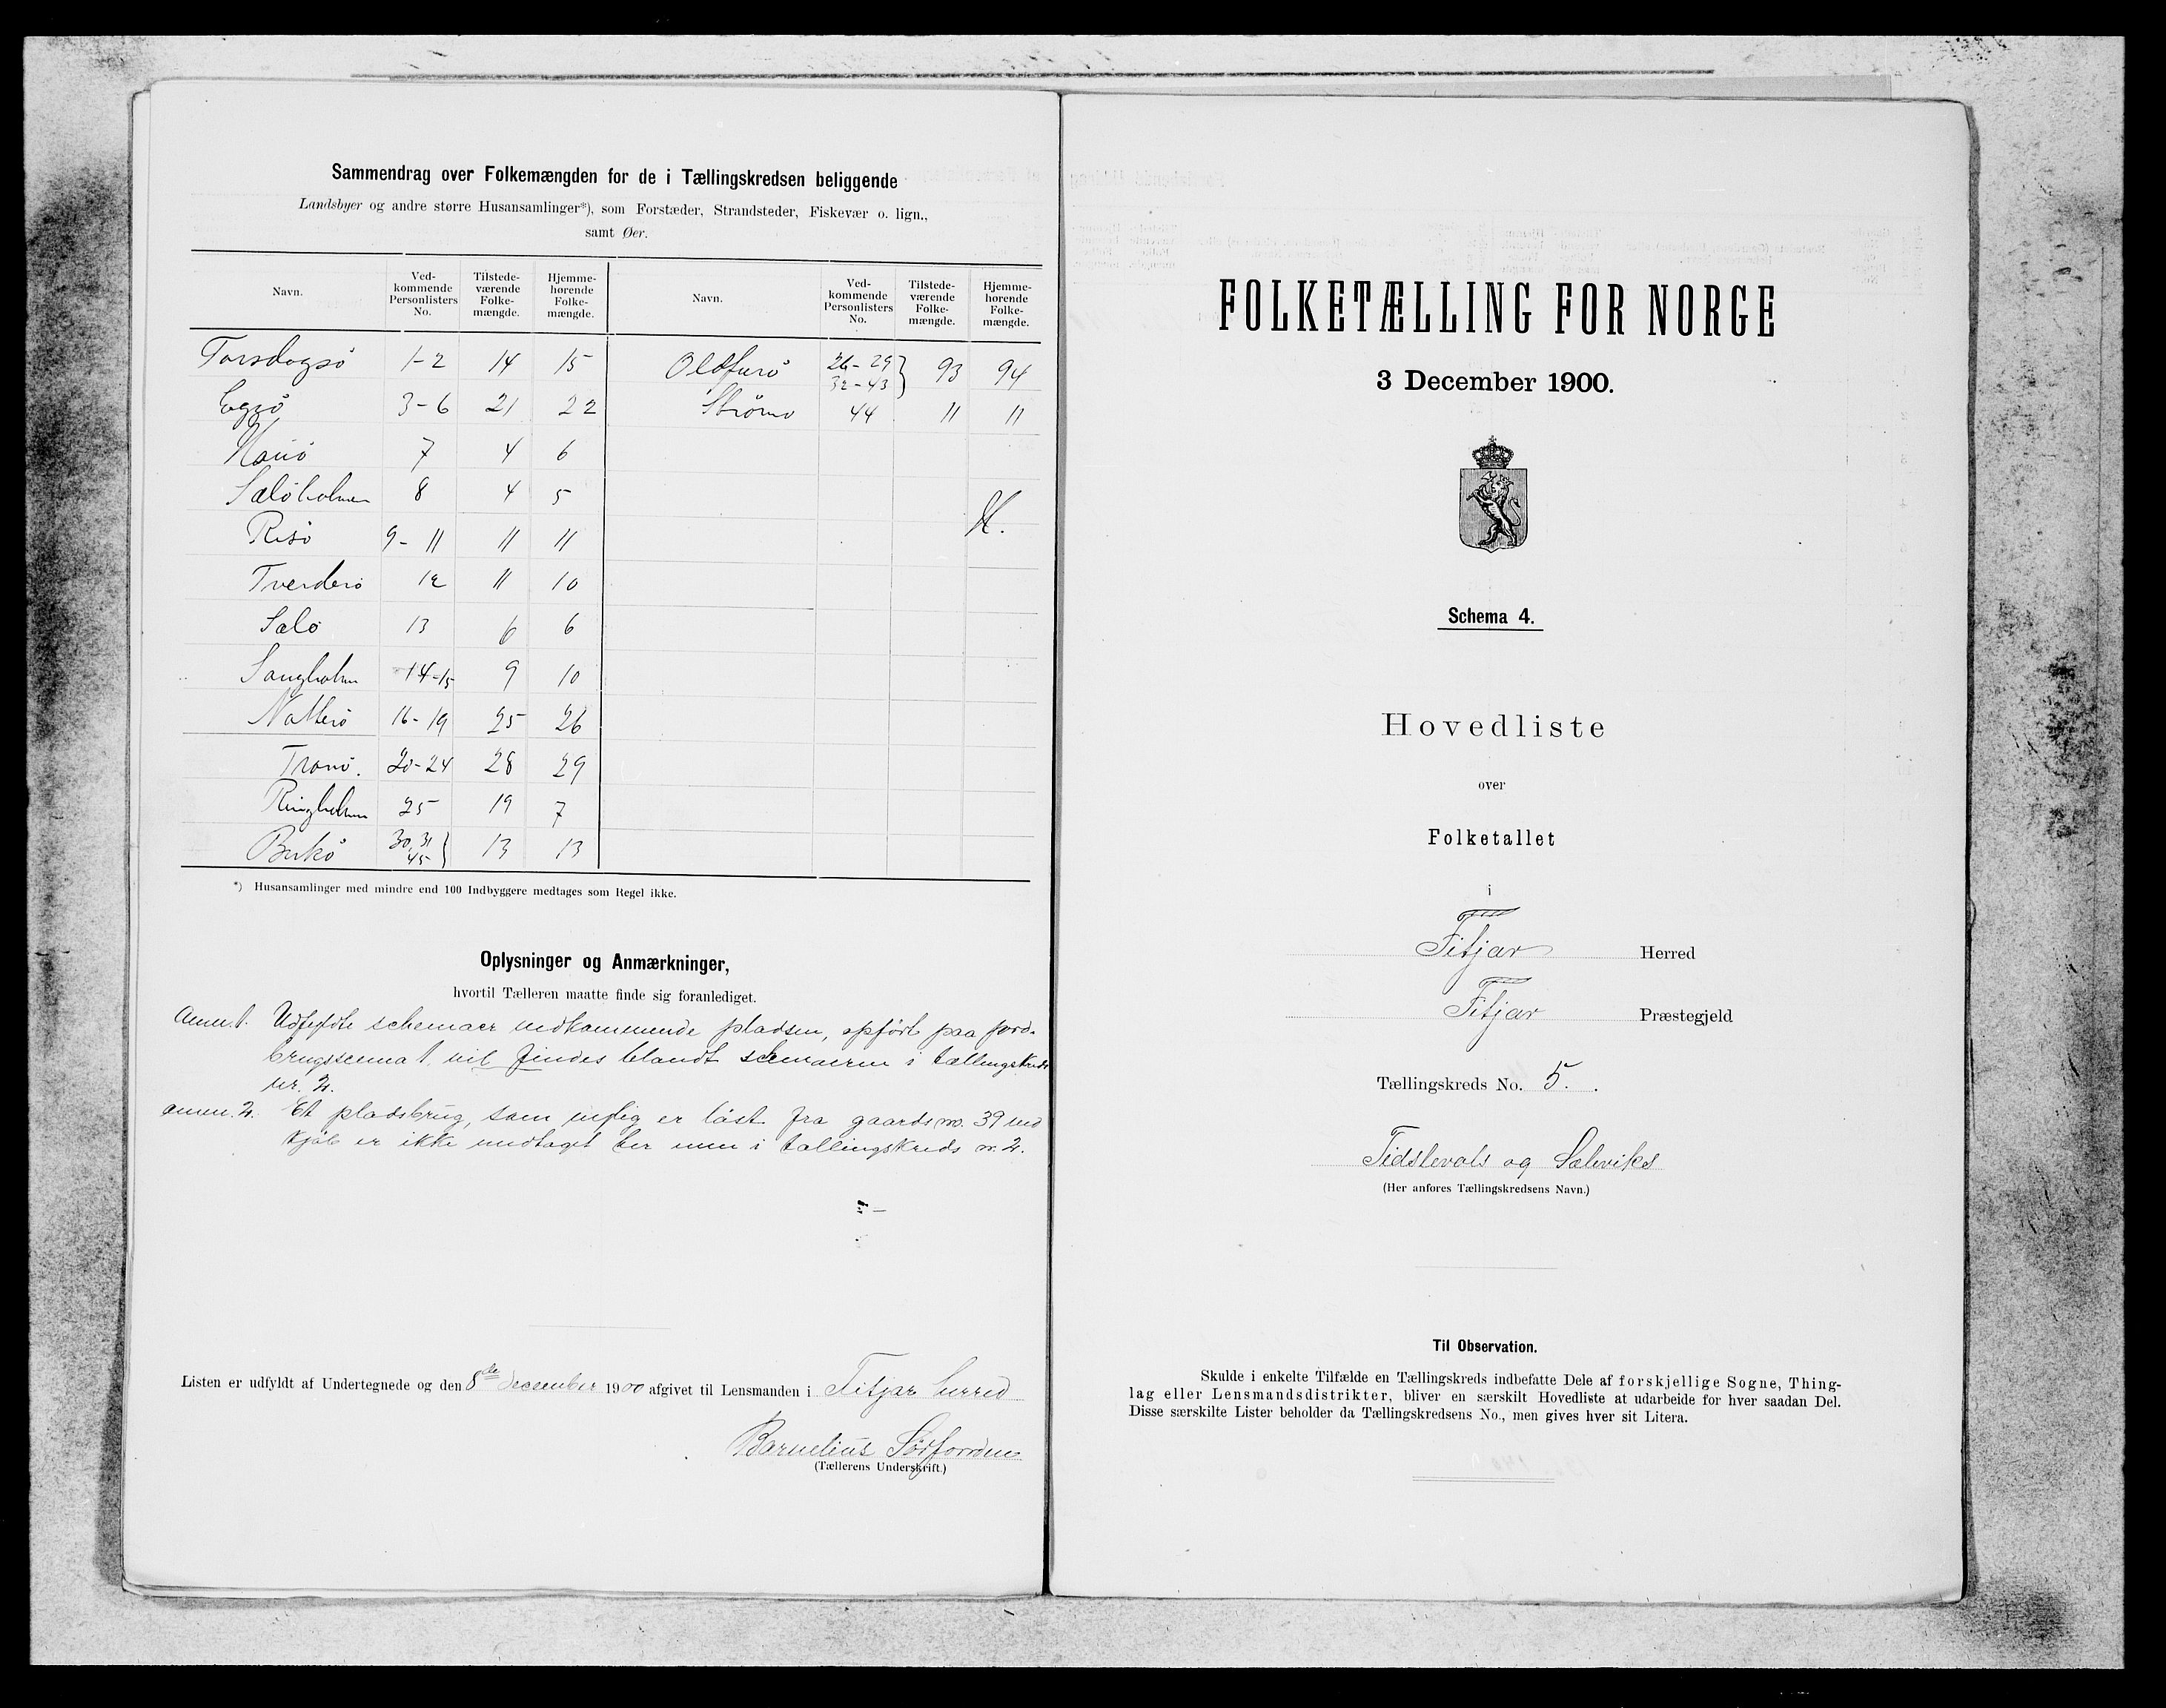 Sammendrag over Folkemængden for de i Tællingskredsen beliggende
Landsbyer og andre større Husansamlinger*), som Forstæder, Strandsteder, Fiskevær o. lign.,
samt Øer.
Navn. Ved-kommende Personlisters No. Tilstede-værende Folke-mængde. Hjemme-hørende Folke-mængde. Navn. Ved-kommende Personlisters No. Tilstede-værende Folke-mængde. Hjemme-hørende Folke-mængde.
Torsdagsø 1-2 14 15 26-29 32-43 } 93 94
Egsø 3-6 21 22 Strømø 44 11 11
7 4 6
Sæløholmen 8 4 5
Risø 9-11 11 11
Tverderø 12 11 10
Sælø 13 6 6
Sangholm 14-15 9 10
Natterø 16-19 25 26
Tranø. 20-24 28 29
Ringholm 25 19 7
30,31 45 } 13 13
*) Husansamlinger med mindre end 100 Indbyggere medtages som Regel ikke.
Oplysninger og Anmærkninger,
hvortil Tælleren maatte finde sig foranlediget.
Anm. 1. Udfyldte schemaer vedkommende pladsen, opført paa jord-
brugsscema 1. vil findes blandt schemaerne i tællingskreds
nr. 2.
anm. 2. Et pladsbrug, som nylig er løst fra gaards no. 39 ved
kjøb er ikke medtaget her men i tællingskreds nr. 2.
Listen er udfyldt af Undertegnede og den 8de december 1900 afgivet til Lensmanden i Fitjar herred
(Tællerens Underskrift.)
FOLKETÆLLING FOR NORGE
3 December 1900.
Schema 4.
Hovedliste
over
Folketallet
i
Fitjar Herred
Fitjar Præstegjeld
Tællingskreds No. 5.
og Sælevikes
(Her anføres Tællingskredsens Navn.)
Til Observation.
Skulde i enkelte Tilfælde en Tællingskreds indbefatte Dele af forskjellige Sogne, Thing-
lag eller Lensmandsdistrikter, bliver en særskilt Hovedliste at udarbeide for hver saadan Del.
Disse særskilte Lister beholder da Tællingskredsens No., men gives hver sit Litera.